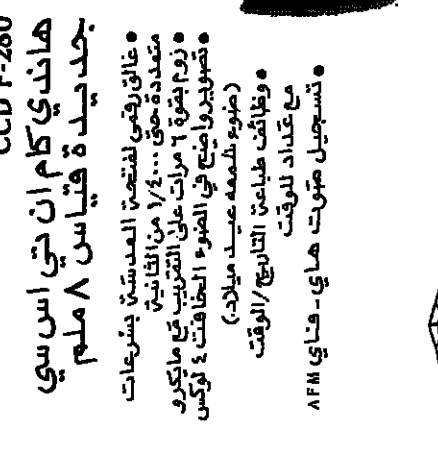 CCD F-280
هاندي كام ان تي اس سي
جديدة قياس ٨ ملم
• غالق رقمي لفتحة العدسة بسرعات
متعددة حتى ١/٤٠٠٠ من الثانية
• زوم بقوة ٦ مرات على التقريب مع ماكرو
• تصوير واضح في الضوء الخافت ٤ لوكس
(ضوء شمعه عيد ميلاد)
• وظائف طباعة التاريخ/الوقت
مع عداد للوقت
• تسجيل صوت هاي-فاي AFM